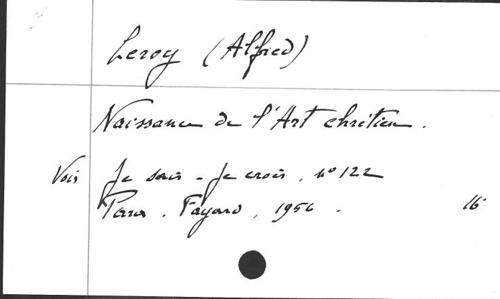 Leroy (Alfred)
Naissance de l'Art chrétien.
Voir Je sais - Je crois, n° 122
Paris. Fayard, 1956. 16°